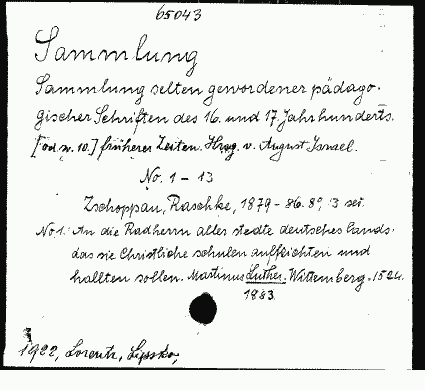 65043
Sammlung
Sammlung selten gewordener pädago-
gischer Schriften des 16. und 17. Jahrhunderts.
[od. N. 10.] früherer Zeiten. Hrsg. v. August Israel.
No. 1 - 13
Zschoppau, Raschke, 1879-86. 8°, 13
No 1. An die Radherrn aller stedte deutsches lands.
das sie Christliche schulen auffrichten und
hallten sollen. Martinus Luther. Wittemberg. 1524.
1883.
1922, Lorentz, Lipsko,